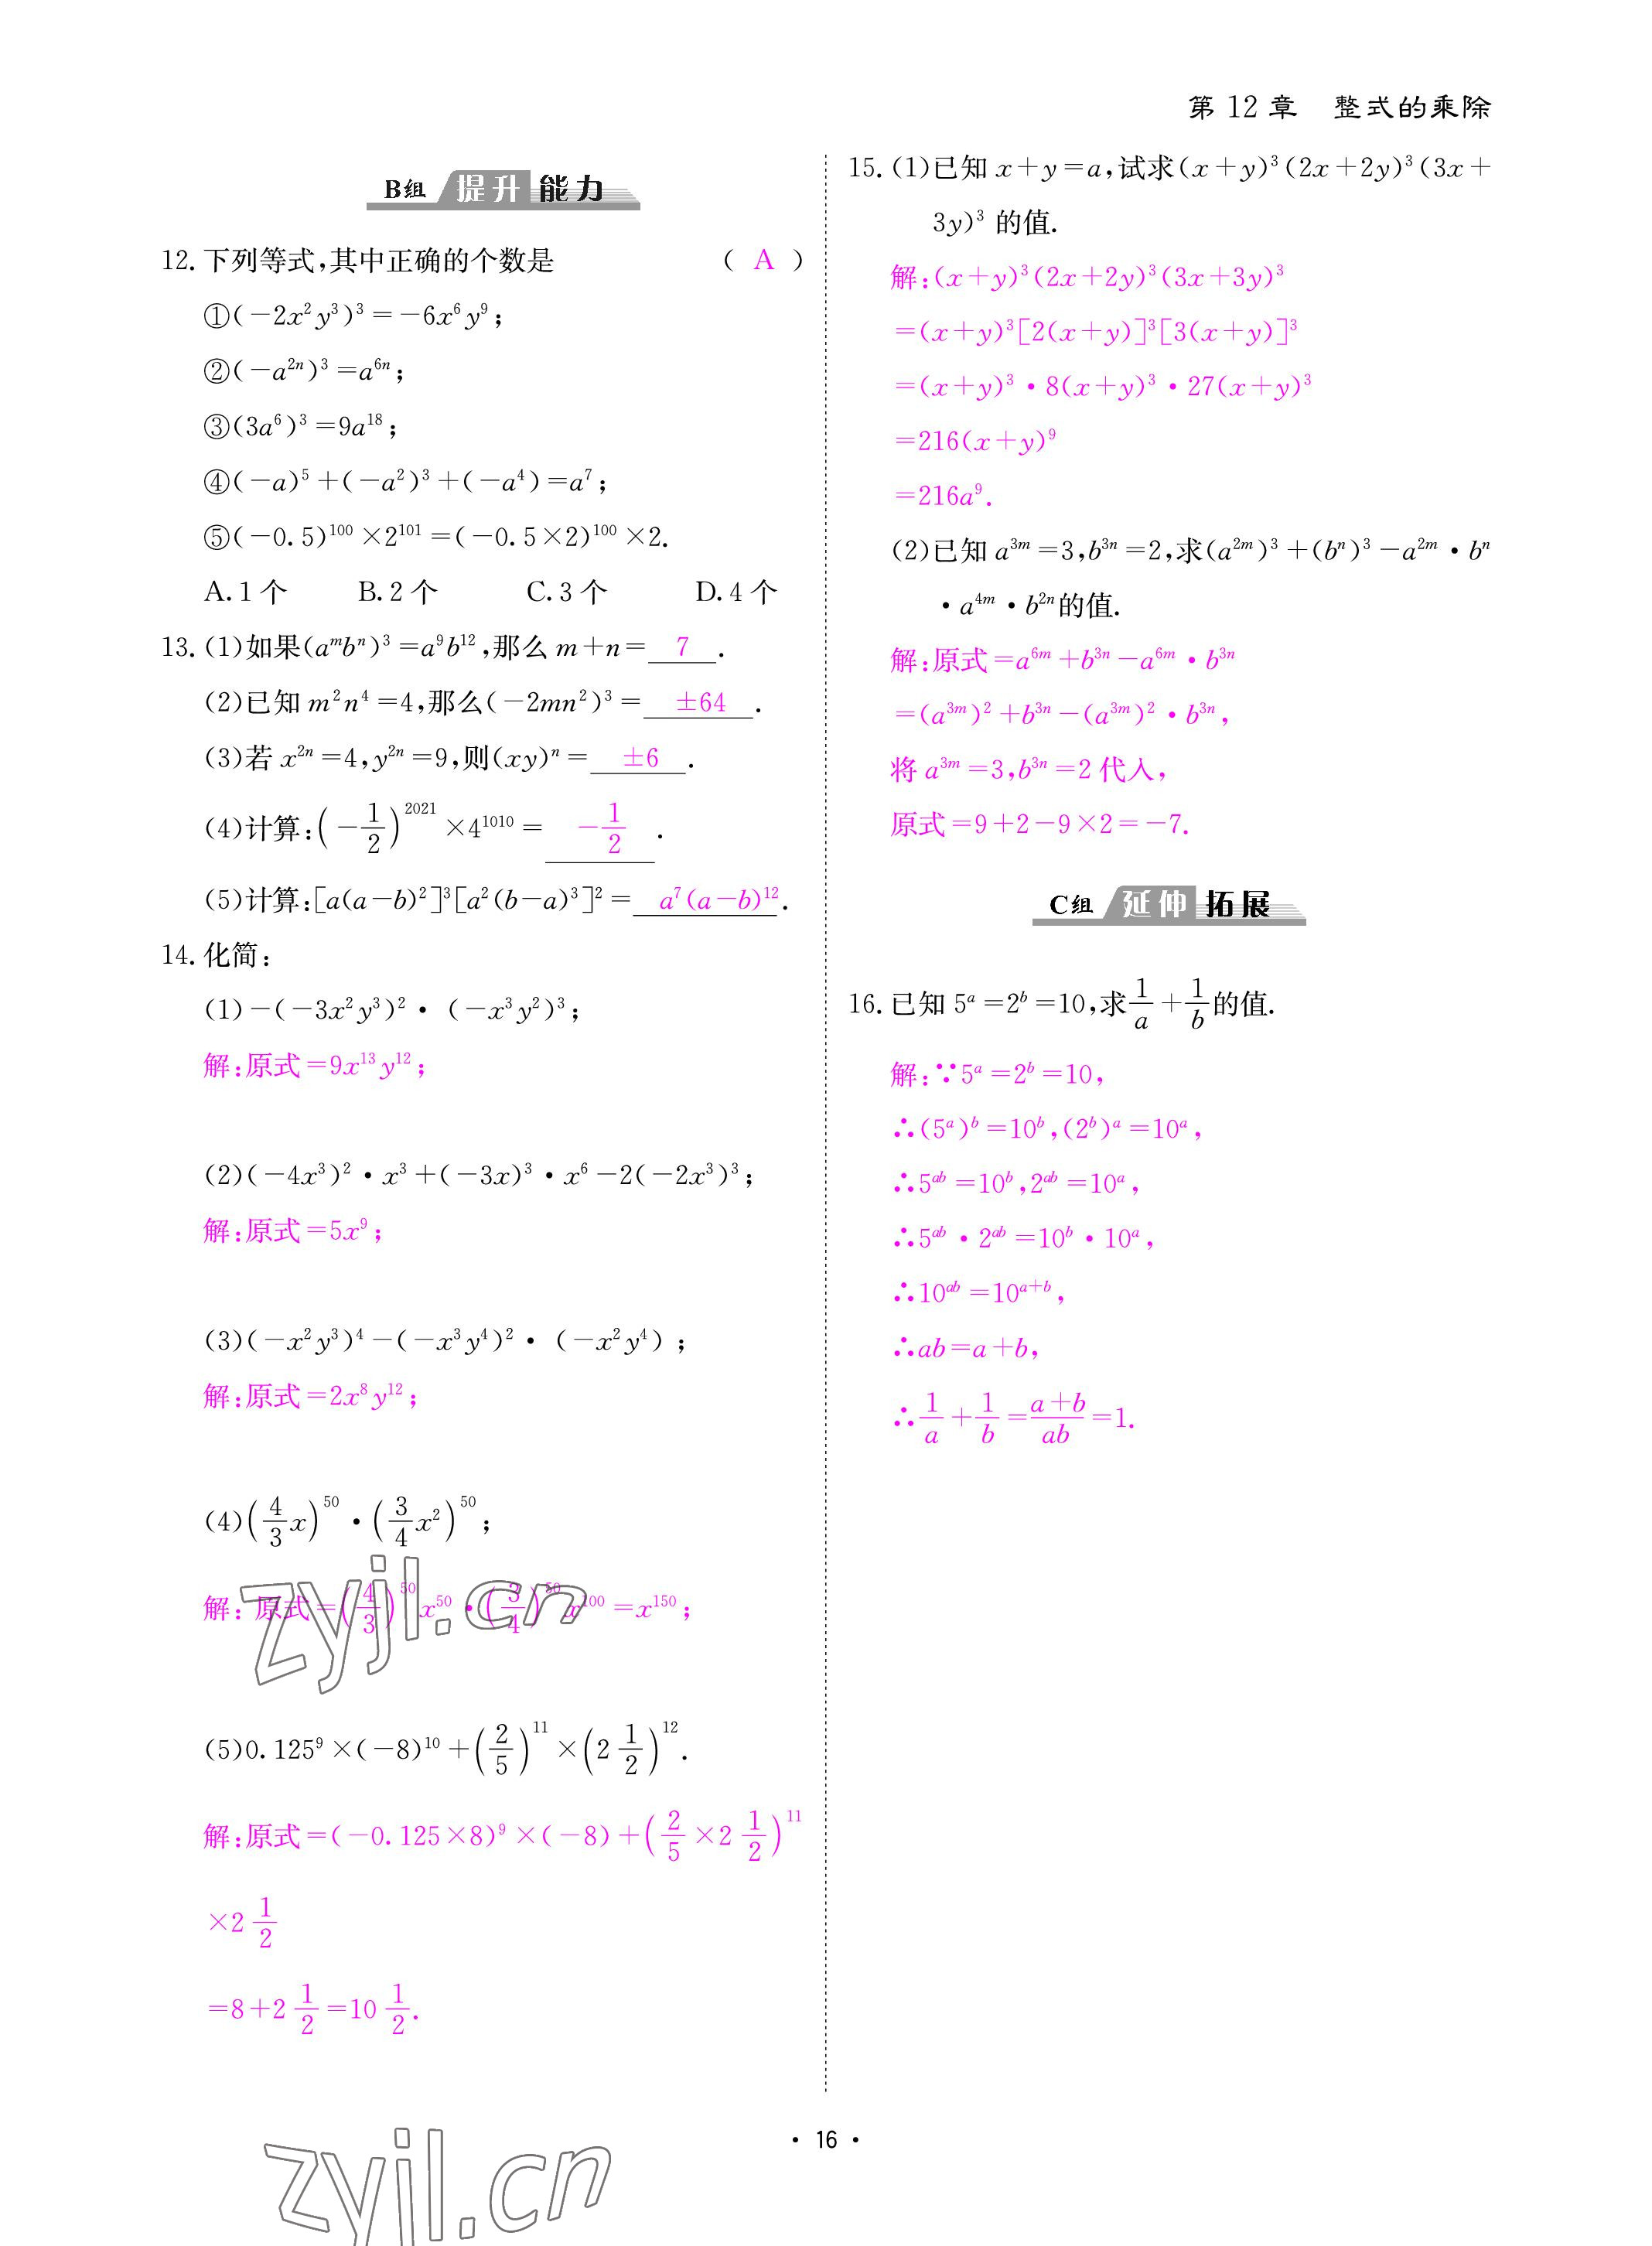 第 12 章　整式的乘除
B组 提升 能力
12. 下列等式,其中正确的个数是 ( A )
①(-2x²y³)³=-6x⁶y⁹;
②(-a²ⁿ)³=a⁶ⁿ;
③(3a⁶)³=9a¹⁸;
④(-a)⁵+(-a²)³+(-a⁴)=a⁷;
⑤(-0.5)¹⁰⁰×2¹⁰¹=(-0.5×2)¹⁰⁰×2.
A.1 个 B.2 个 C.3 个 D.4 个
13. (1)如果(aᵐbⁿ)³=a⁹b¹²,那么 m+n= 7 .
(2)已知 m²n⁴=4,那么(-2mn²)³= ±64 .
(3)若 x²ⁿ=4,y²ⁿ=9,则(xy)ⁿ= ±6 .
(4)计算:(-1/2)²⁰²¹×4¹⁰¹⁰= -1/2 .
(5)计算:[a(a-b)²]³[a²(b-a)³]²= a⁷(a-b)¹² .
14. 化简:
(1)-(-3x²y³)²·(-x³y²)³;
解:原式=9x¹³y¹²;
(2)(-4x³)²·x³+(-3x)³·x⁶-2(-2x³)³;
解:原式=5x⁹;
(3)(-x²y³)⁴-(-x³y⁴)²·(-x²y⁴);
解:原式=2x⁸y¹²;
(4)(4/3 x)⁵⁰·(3/4 x²)⁵⁰;
解:原式=(4/3)⁵⁰x⁵⁰·(3/4)⁵⁰x¹⁰⁰=x¹⁵⁰;
(5)0.125⁹×(-8)¹⁰+(2/5)¹¹×(2 1/2)¹².
解:原式=(-0.125×8)⁹×(-8)+(2/5×2 1/2)¹¹
×2 1/2
=8+2 1/2=10 1/2.
15. (1)已知 x+y=a,试求(x+y)³(2x+2y)³(3x+
3y)³ 的值.
解:(x+y)³(2x+2y)³(3x+3y)³
=(x+y)³[2(x+y)]³[3(x+y)]³
=(x+y)³·8(x+y)³·27(x+y)³
=216(x+y)⁹
=216a⁹.
(2)已知 a³ᵐ=3,b³ⁿ=2,求(a²ᵐ)³+(bⁿ)³-a²ᵐ·bⁿ
·a⁴ᵐ·b²ⁿ的值.
解:原式=a⁶ᵐ+b³ⁿ-a⁶ᵐ·b³ⁿ
=(a³ᵐ)²+b³ⁿ-(a³ᵐ)²·b³ⁿ,
将 a³ᵐ=3,b³ⁿ=2 代入,
原式=9+2-9×2=-7.
C组 延伸 拓展
16. 已知 5ᵃ=2ᵇ=10,求1/a+1/b的值.
解:∵5ᵃ=2ᵇ=10,
∴(5ᵃ)ᵇ=10ᵇ,(2ᵇ)ᵃ=10ᵃ,
∴5ᵃᵇ=10ᵇ,2ᵃᵇ=10ᵃ,
∴5ᵃᵇ·2ᵃᵇ=10ᵇ·10ᵃ,
∴10ᵃᵇ=10ᵃ⁺ᵇ,
∴ab=a+b,
∴1/a+1/b=(a+b)/ab=1.
zyjl.cn
· 16 ·
zyjl.cn